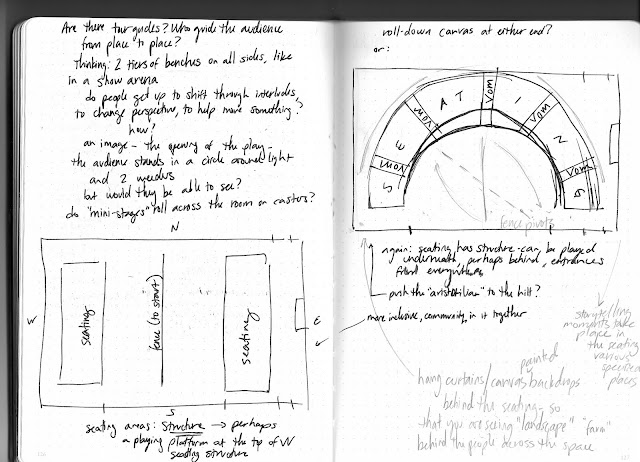 Are there tour guides? Who guide the audience
from place to place?
Thinking: 2 tiers of benches on all sides, like
in a show arena
do people get up to shift through interludes,
to change perspective, to help move something?
how?
an image - the opening of the play -
the audience stands in a circle around light
and 2
but would they be able to see?
do "mini-stages" roll across the room on castors?
N
W
seating
fence (to start)
seating
E
S
seating areas: Structure → perhaps
a playing platform at the top of W
seating structure
roll-down canvas at either end?
or:
S E A T I N G
Vom
Vom
Vom
Vom
Vom
fence pivots
again: seating has structure - can be played
underneath, perhaps behind, entrances
from everywhere
push the "aristotelian" to the hilt?
more inclusive, community, in it together
storytelling
moments take
place in
the seating
various
specified
places
painted
hang curtains/canvas backdrops
behind the seating - so
that you are seeing "landscape" "farm"
behind the people across the space